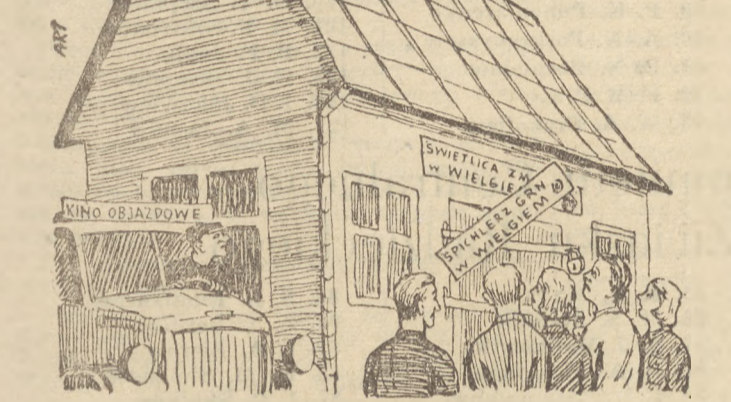 ART
KINO OBJAZDOWE
ŚWIETLICA ZM
W WIELGIE
SPICHLERZ GRN
W WIELGIEM